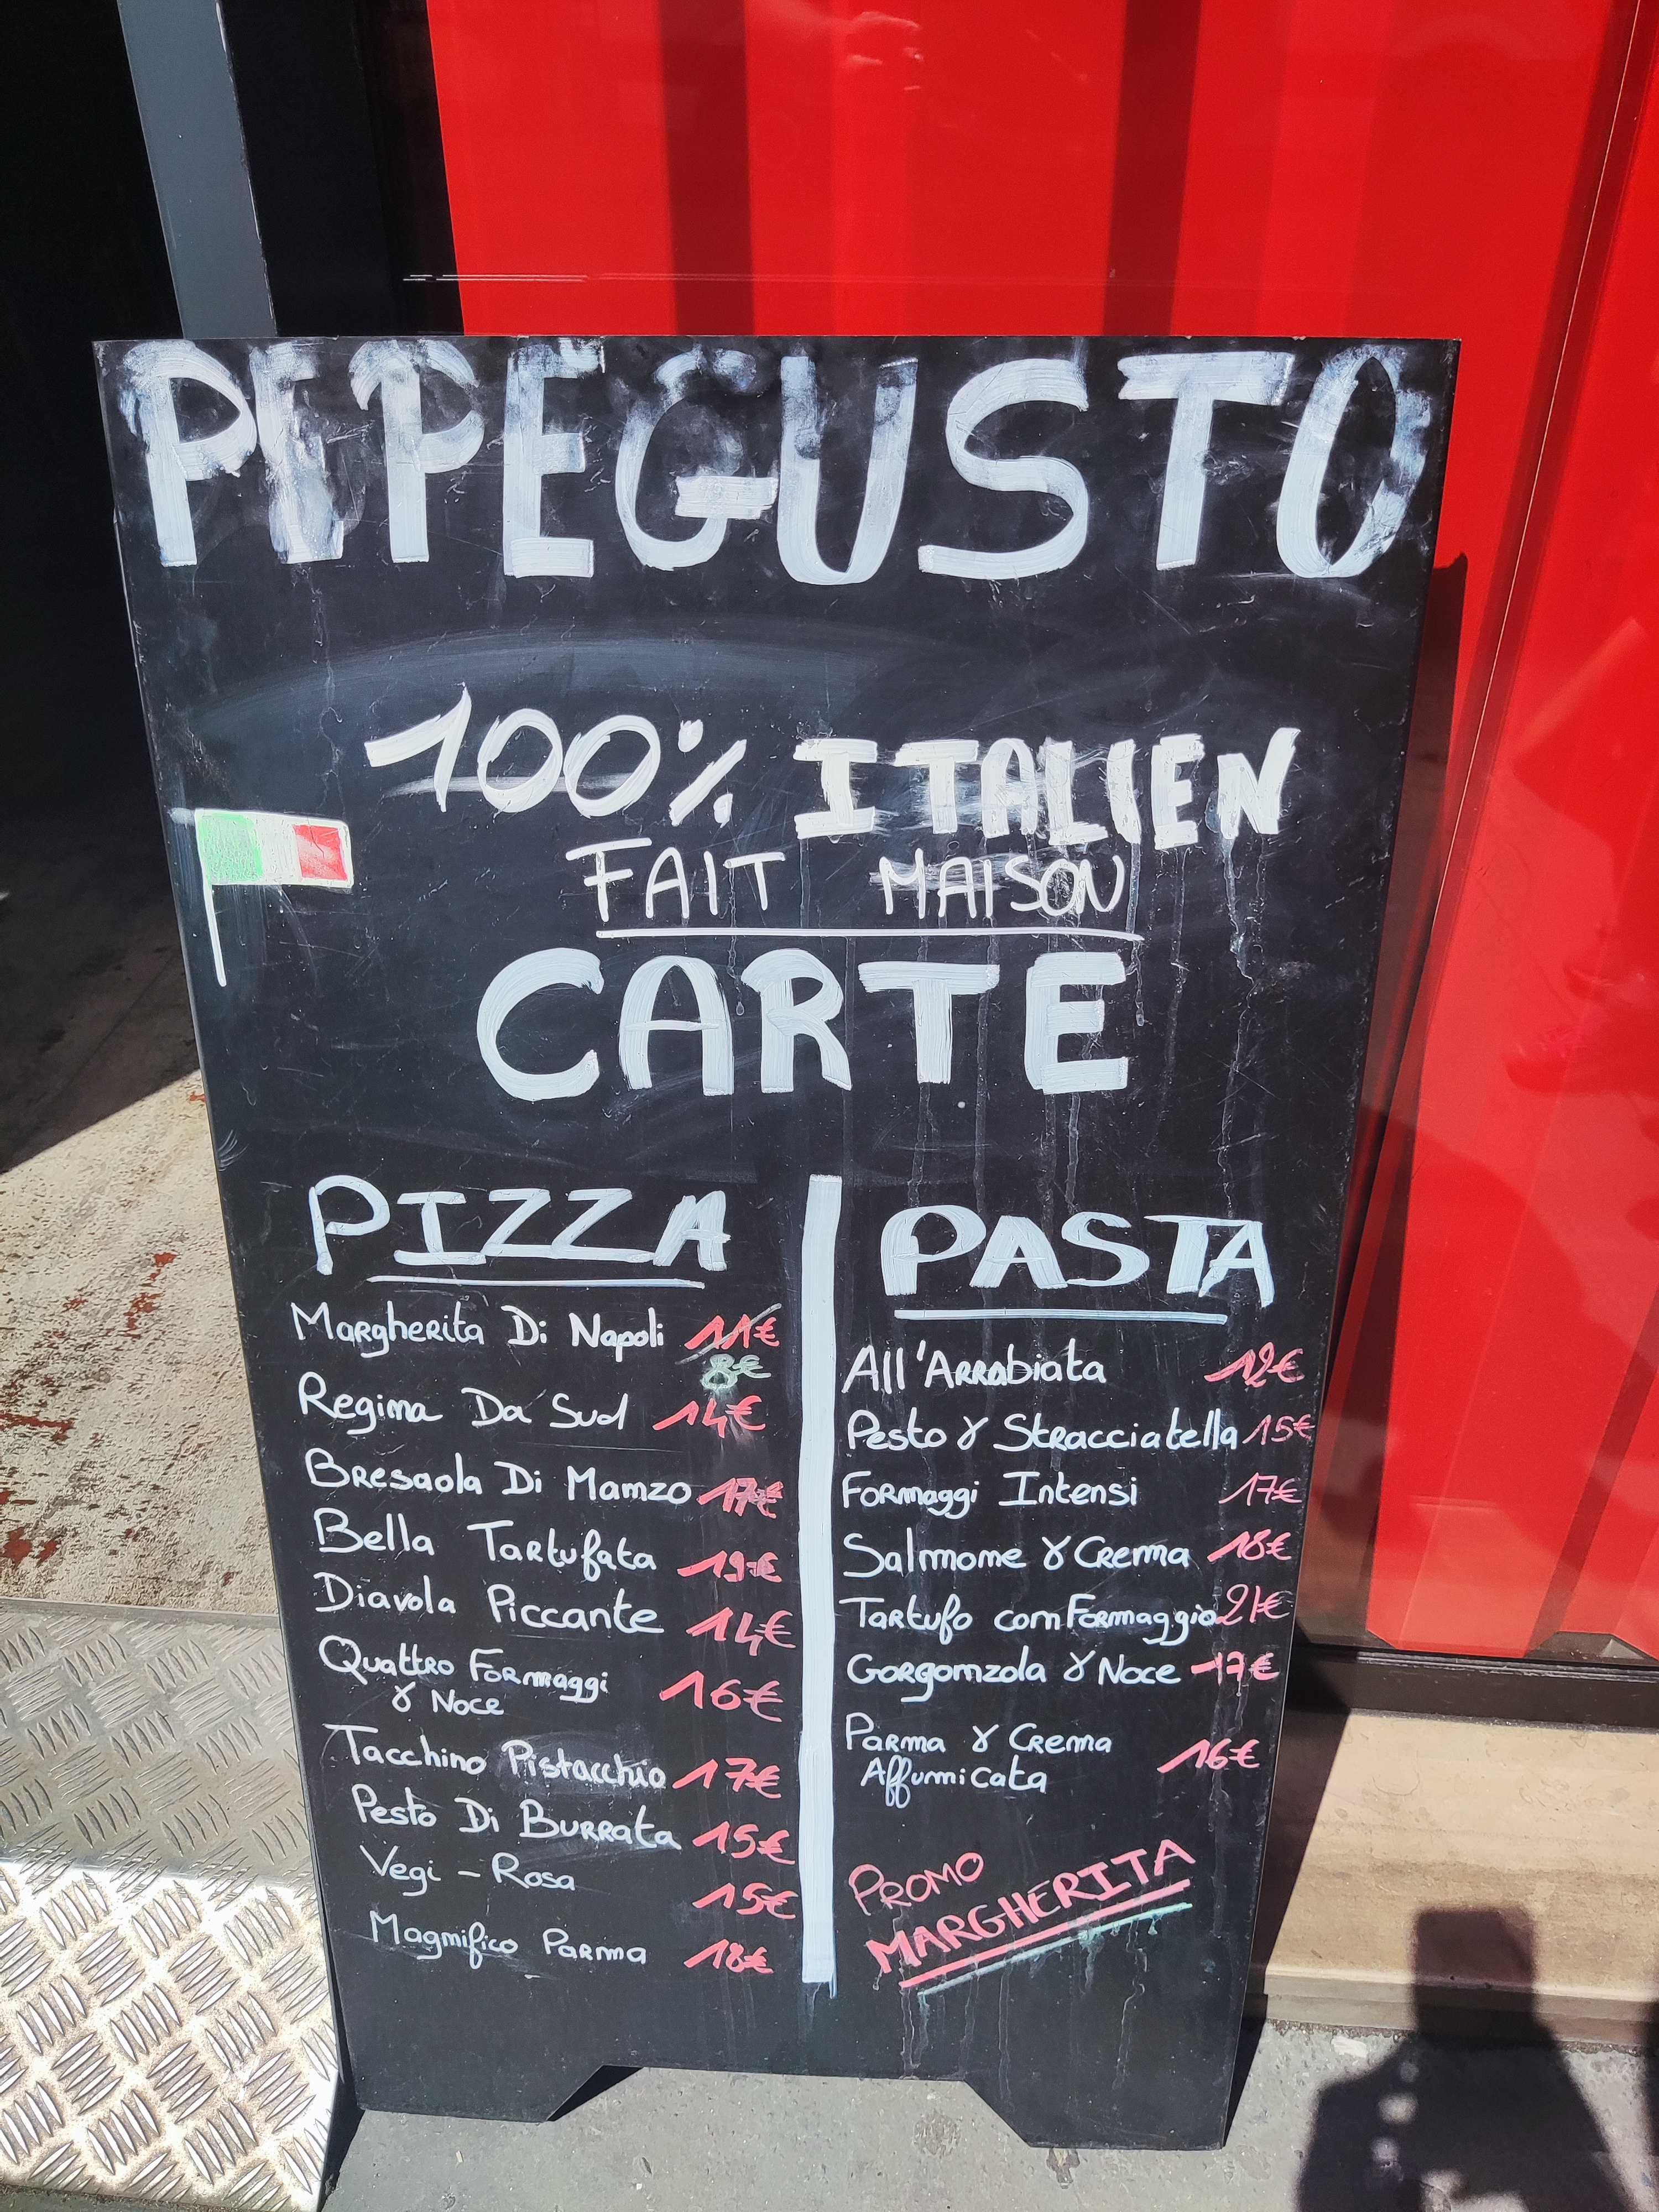 PEPEGUSTO
100% ITALIEN
FAIT MAISON
CARTE
PIZZA
Margherita Di Napoli 11€
8€
Regina Da Sud 14€
Bresaola Di Manzo 17€
Bella Tartufata 19€
Diavola Piccante 14€
Quattro Formaggi
& Noce 16€
Tacchino Pistacchio 17€
Pesto Di Burrata 15€
Vegi - Rosa 15€
Magnifico Parma 18€
PASTA
All'Arrabiata 12€
Pesto & Stracciatella 15€
Formaggi Intensi 17€
Salmone & Crema 18€
Tartufo con Formaggio 21€
Gorgonzola & Noce 17€
Parma & Crema
Affumicata 16€
PROMO
MARGHERITA